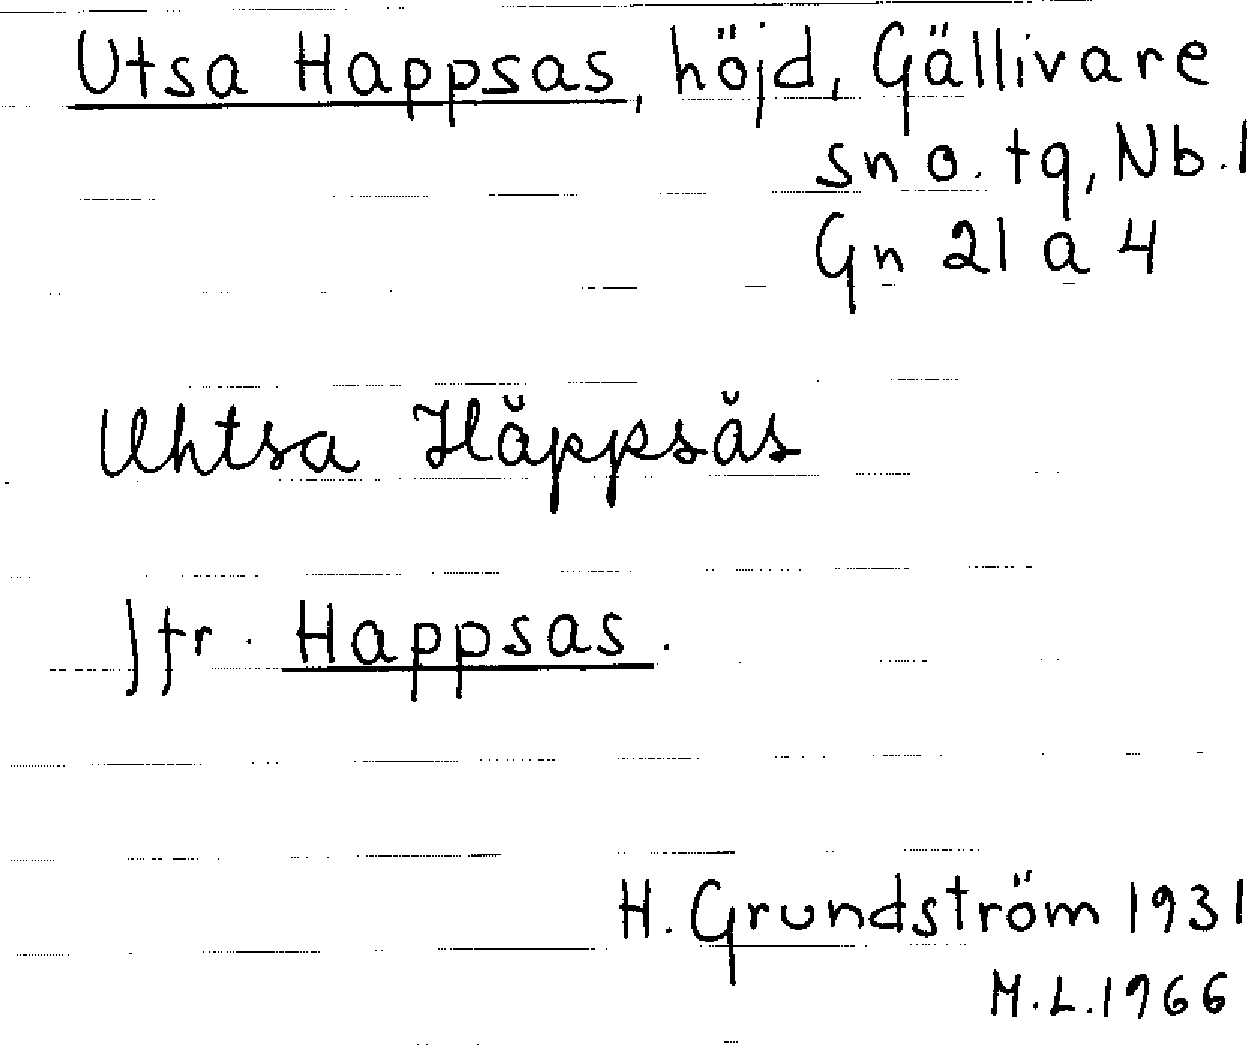 Utsa Happsas, höjd, Gällivare
sn o. tg, Nb. l
Gn 21 a 4
Uhtsa Hăppsăs
Jfr. Happsas.
H. Grundström 1931
M.L. 1966